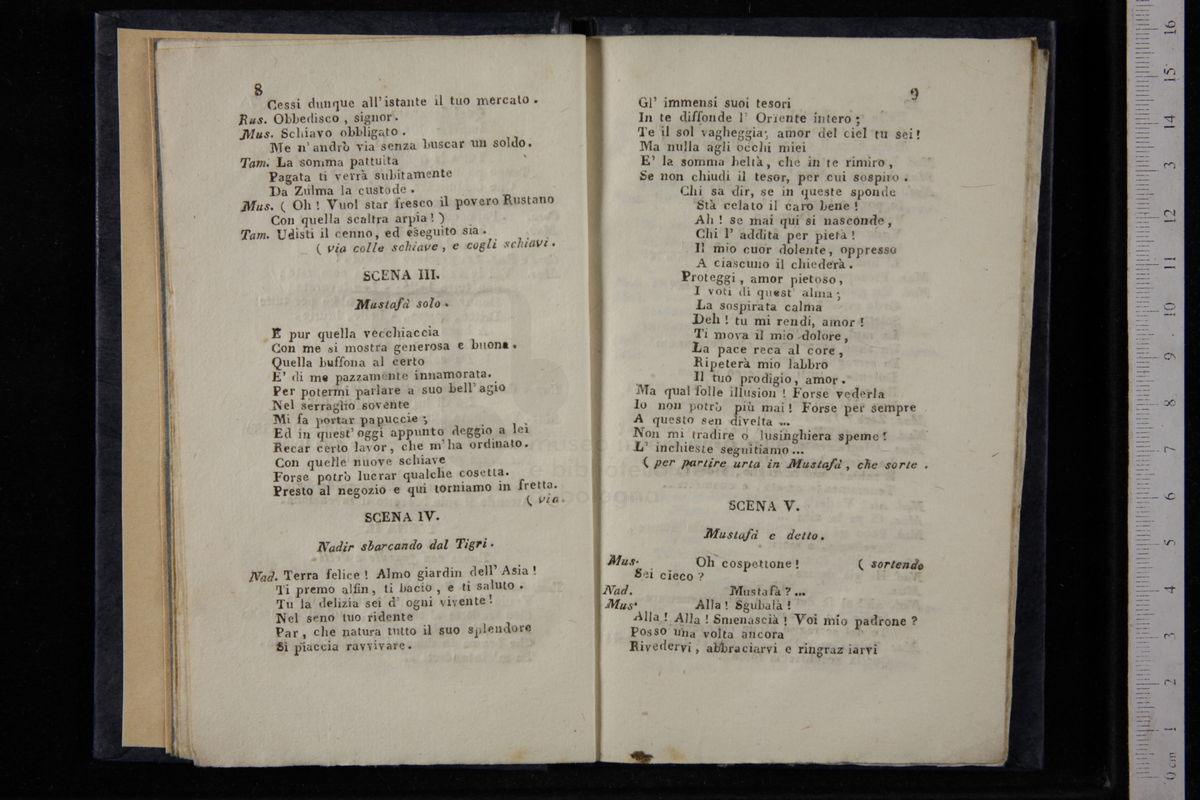 8
Cessi dunque all' istante il tuo mercato .
Rus. Obbedisco , signor .
Mus. Schiavo obbligato .
Me n' andrò via senza buscar un soldo .
Tam. La somma pattuita
Pagata ti verrà subitamente
Da Zulma la custode .
Mus. ( Oh ! Vuol star fresco il povero Rustano
Con quella scaltra arpia ! )
Tam. Udisti il cenno, ed eseguito sia .
( via colle schiave , e cogli schiavi .
SCENA III.
Mustafà solo .
E pur quella vecchiaccia
Con me si mostra generosa e buona .
Quella buffona al certo
E' di me pazzamente innamorata.
Per potermi parlare a suo bell' agio
Nel serraglio sovente
Mi fa portar papuccie ;
Ed in quest' oggi appunto deggio a lei
Recar certo lavor , che m' ha ordinato.
Con quelle nuove schiave
Forse potrò lucrar qualche cosetta.
Presto al negozio e qui torniamo in fretta.
( via.
SCENA IV.
Nadir sbarcando dal Tigri .
Nad. Terra felice ! Almo giardin dell' Asia !
Ti premo alfin , ti bacio , e ti saluto .
Tu la delizia sei d' ogni vivente !
Nel seno tuo ridente
Par , che natura tutto il suo splendore
Si piaccia ravvivare .
9
Gl' immensi suoi tesori
In te diffonde l' Oriente intero ;
Te il sol vagheggia ; amor del ciel tu sei !
Ma nulla agli occhi miei
E' la somma beltà , che in te rimiro ,
Se non chiudi il tesor, per cui sospiro .
Chi sa dir, se in queste sponde
Stà celato il caro bene !
Ah ! se mai qui si nasconde ,
Chi l' addita per pietà !
Il mio cuor dolente, oppresso
A ciascuno il chiederà .
Proteggi , amor pietoso ,
I voti di quest' alma ;
La sospirata calma
Deh ! tu mi rendi, amor !
Ti mova il mio dolore ,
La pace reca al core ,
Ripeterà mio labbro
Il tuo prodigio , amor .
Ma qual folle illusion ! Forse vederla
Io non potrò più mai ! Forse per sempre
A questo sen divelta ...
Non mi tradire o lusinghiera speme !
L' inchieste seguitiamo ...
( per partire urta in Mustafà , che sorte .
SCENA V.
Mustafà e detto .
Mus. Oh cospettone ! ( sortendo
Sei cieco ?
Nad. Mustafà ? ...
Mus. Alla ! Sgubalà !
Alla ! Alla ! Smenascià ! Voi mio padrone ?
Posso una volta ancora
Rivedervi , abbraciarvi e ringraz iarvi